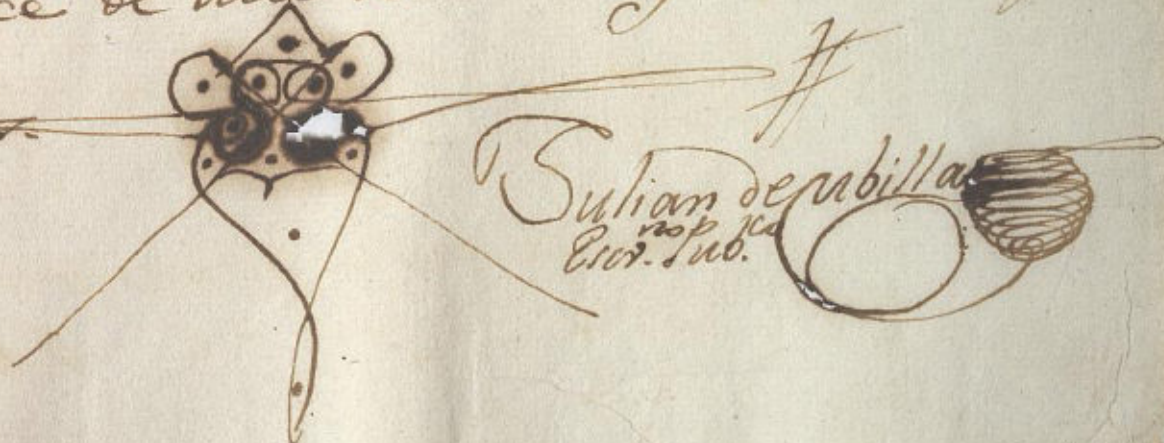 ce de
Julian de rubilla
Escr.no pub.co